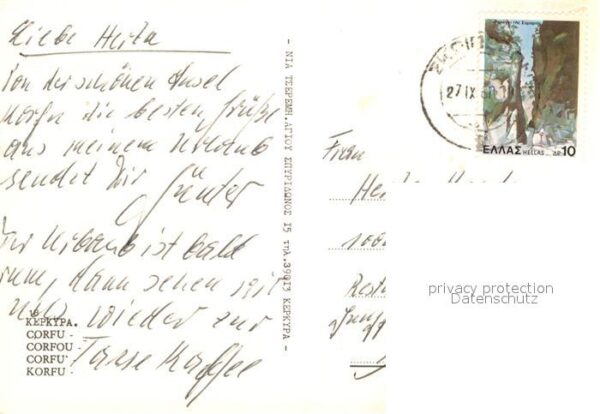 Liebe Herta
Von der schönen Insel
Korfu die besten Grüße
aus meinem Urlaub
sendet Dir
Günter
Der Urlaub ist bald
rum, dann sehen wir
uns wieder zur
Tasse Kaffee
18
ΚΕΡΚΥΡΑ.
CORFU -
CORFOU -
CORFU'
KORFU -
- ΝΙΑ ΤΣΕΡΕΜΗ.ΑΓΙΟΥ ΣΠΥΡΙΔΩΝΟΣ 15 τηλ.39013 ΚΕΡΚΥΡΑ -
27 IX 80
ΕΛΛΑΣ HELLAS ΔΡ. 10
Frau
privacy protection
Datenschutz